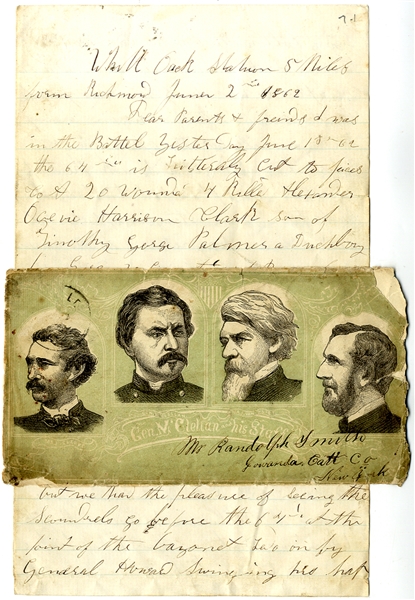 71
Whitt Oack Station 5 Miles
from Richmond June 2nd 1862
Dear Parents & freinds I was
in the Battel Yester Day June 1st 62
the 64 is Litteraly Cut to pieces
Co A 20 wounded 4 Killed Alexander
Ogevie Harrison Clark son of
Timothy George Palmer a Duchboy
Gen. McClellan and his Staff
Mr Randolph Smith
Gowanda Catt Co
New York
but we had the pleasure of seeing the
Scoundrels go before the 64th at the
point of the bayonet led on by
General Howard Swinging his hat